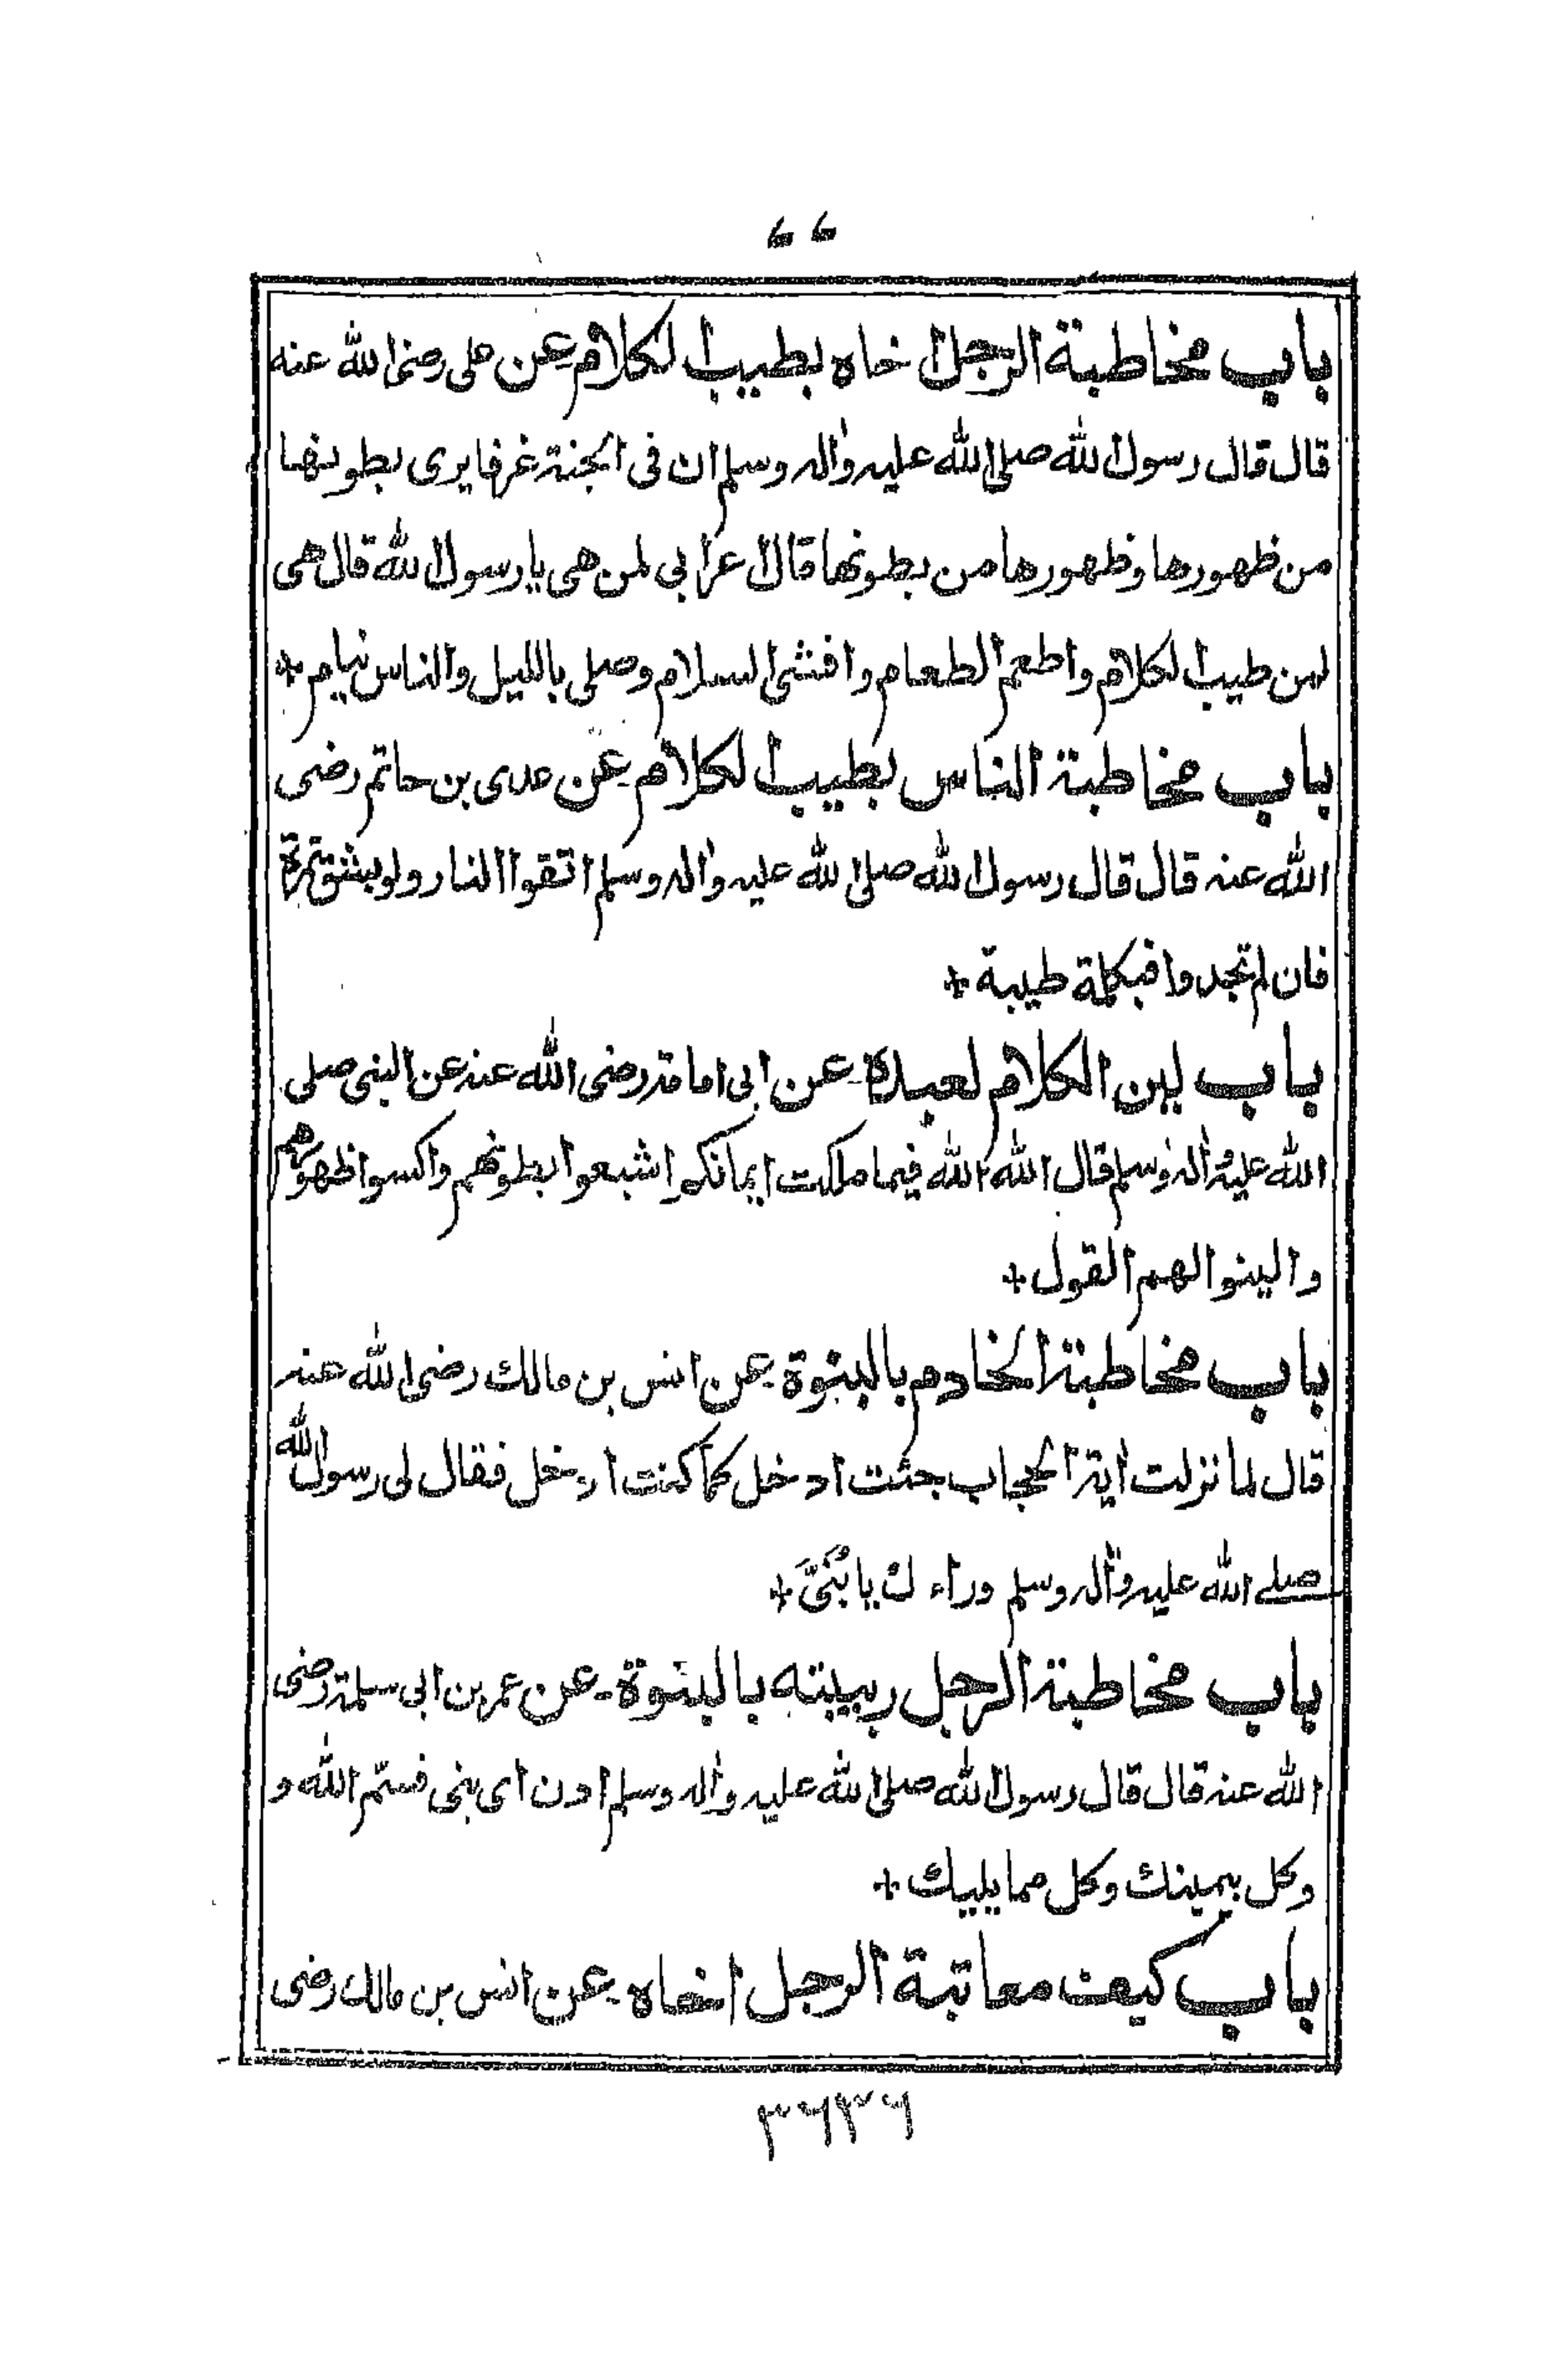 ٦٦
باب مخاطبة الرجل اخاه بطيب الكلام۔عن علی رضی الله عنه
قال قال رسول الله صلی الله علیه واٰله وسلم ان فی الجنة غرفا یری بطونها
من ظهورها وظهورها من بطونها قال اعرابی لمن هی یا رسول الله قال هی
لمن طیب الكلام واطعم الطعام وافشی السلام وصلی باللیل والناس نیام+
باب مخاطبة الناس بطیب الكلام۔عن عدی بن حاتم رضی
الله عنه قال قال رسول الله صلی الله علیه واٰله وسلم اتقوا النار ولو بشق تمرة
فان لم تجدوا فبكلمة طیبة+
باب لین الكلام لعبده۔عن ابی امامة رضی الله عنه عن النبی صلی
الله علیه واٰله وسلم قال الله الله فیما ملكت ایمانكم اشبعوا بطونهم واكسوا ظهورهم
والینوا لهم القول+
باب مخاطبة الخادم بالبنوة۔عن انس بن مالك رضی الله عنه
قال لما نزلت اٰیة الحجاب جئت ادخل كما كنت ادخل فقال لی رسول الله
صلے الله علیه واٰله وسلم وراءك یا بُنَیَّ+
باب مخاطبة الرجل ربیبته بالبنوة۔عن عمر بن ابی سلمة رضی
الله عنه قال قال رسول الله صلی الله علیه واٰله وسلم ادن ای بنی فسمّ الله و
وكل بیمینك وكل مما یلیك+
باب كیف معاتبة الرجل اخاه۔عن انس بن مالك رضی
٣٦٣٦